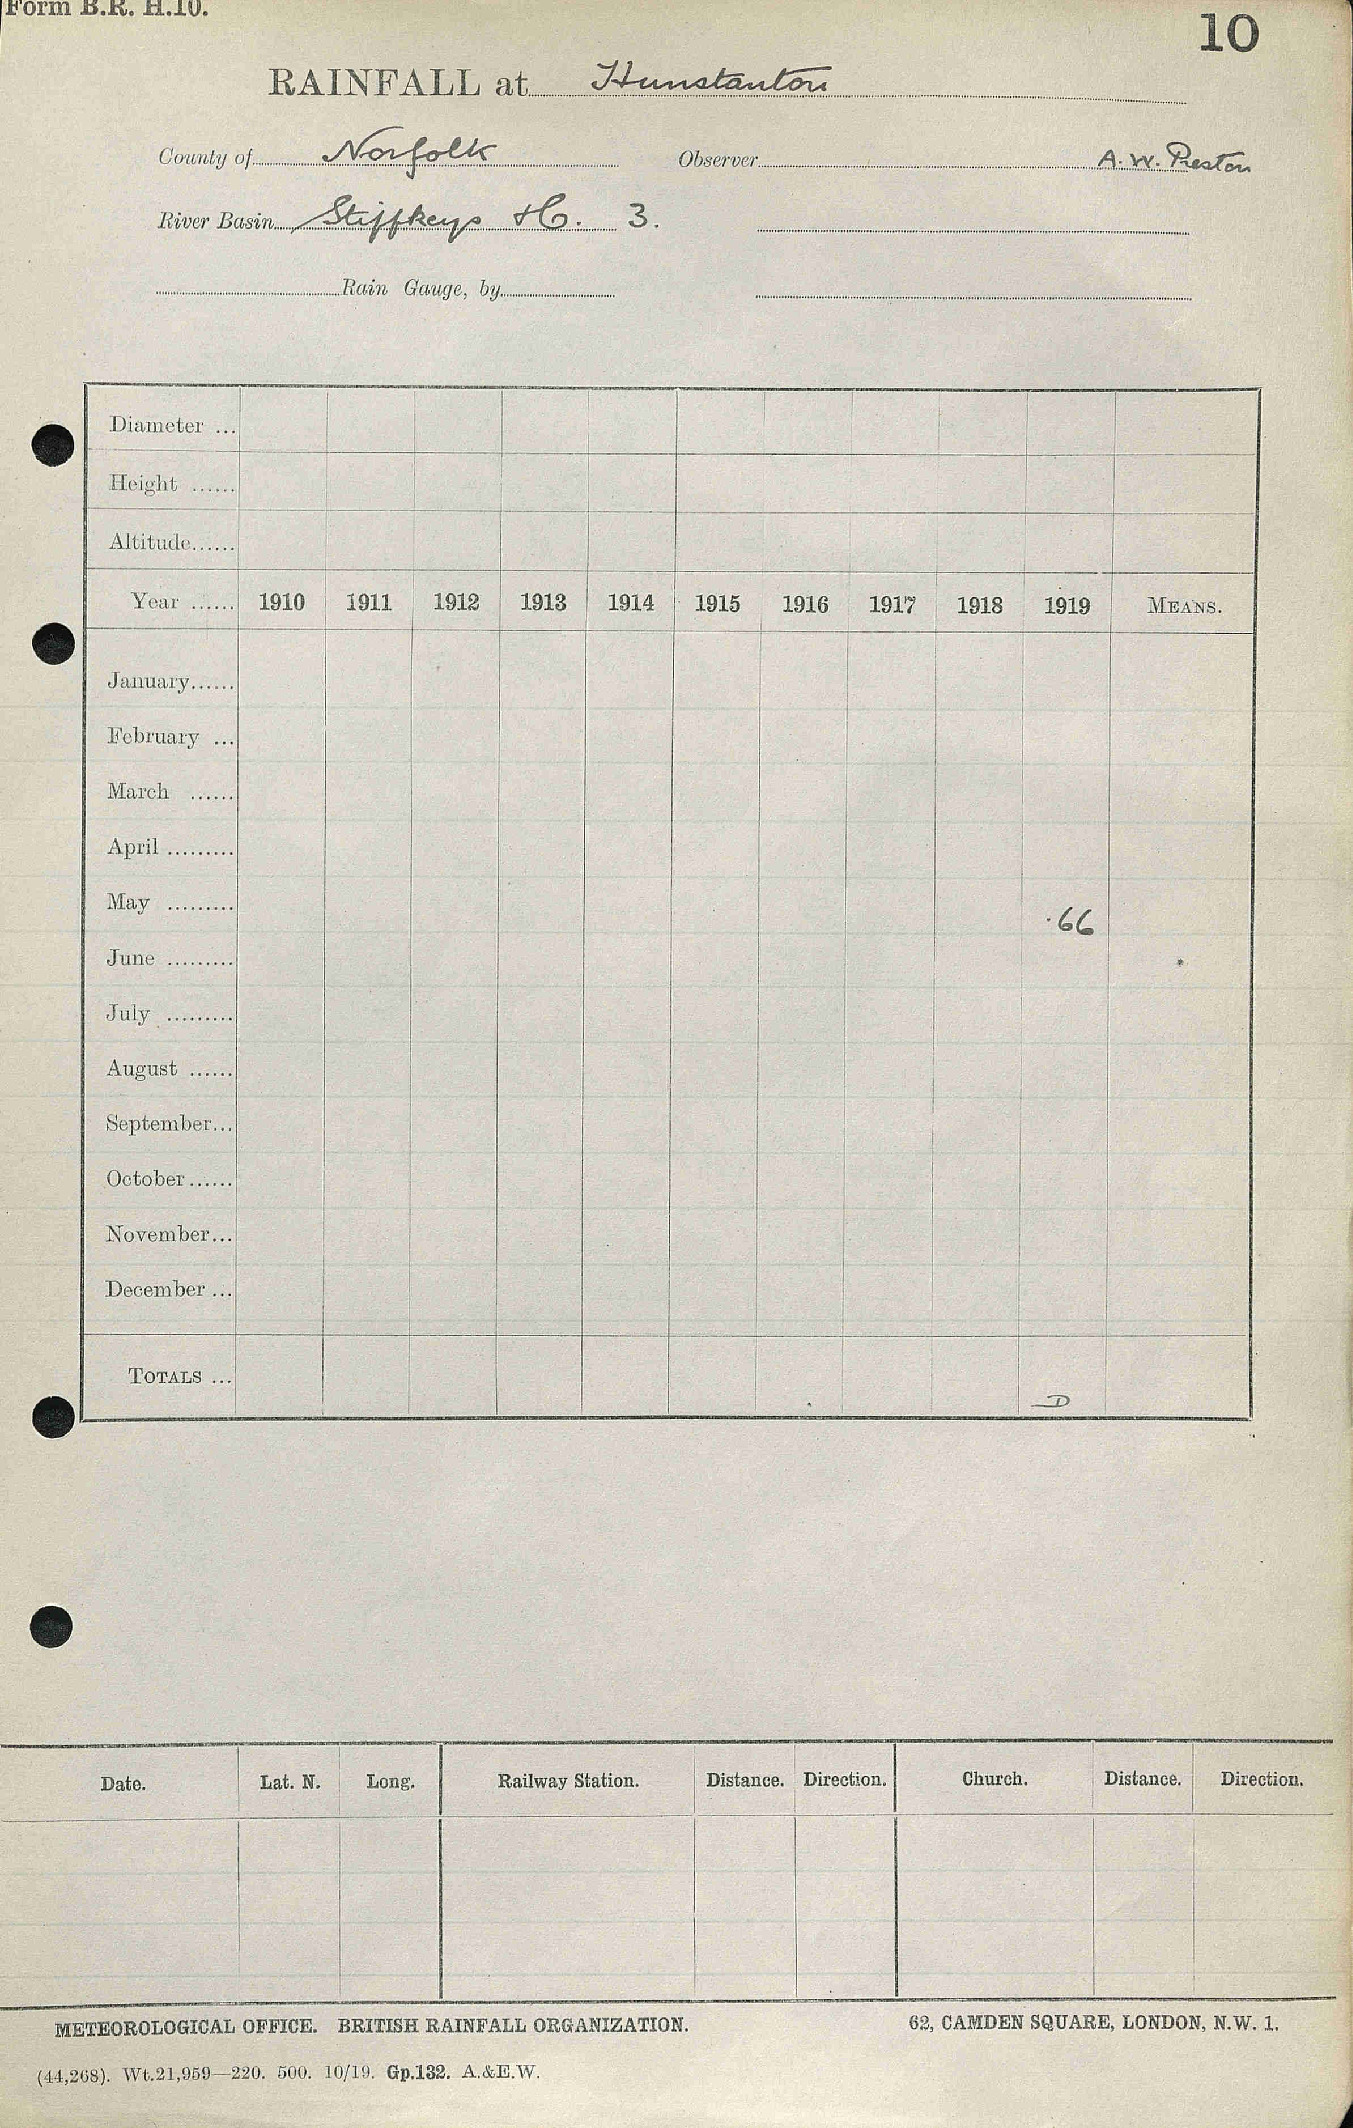 Form B.R. H.10.
10
RAINFALL at Hunstanton
County of Norfolk Observer A. W. Preston
River Basin Stiffkey &c. 3.
Rain Gauge, by
Diameter ...
Height ......
Altitude......
Year ...... 1910 1911 1912 1913 1914 1915 1916 1917 1918 1919 MEANS.
January......
February ...
March ......
April .........
May ......... ·66
June .........
July .........
August ......
September...
October......
November...
December ...
TOTALS ...
D
Date. Lat. N. Long. Railway Station. Distance. Direction. Church. Distance. Direction.
METEOROLOGICAL OFFICE. BRITISH RAINFALL ORGANIZATION. 62, CAMDEN SQUARE, LONDON, N.W. 1.
(44,268). Wt.21,959—220. 500. 10/19. Gp.132. A.&E.W.